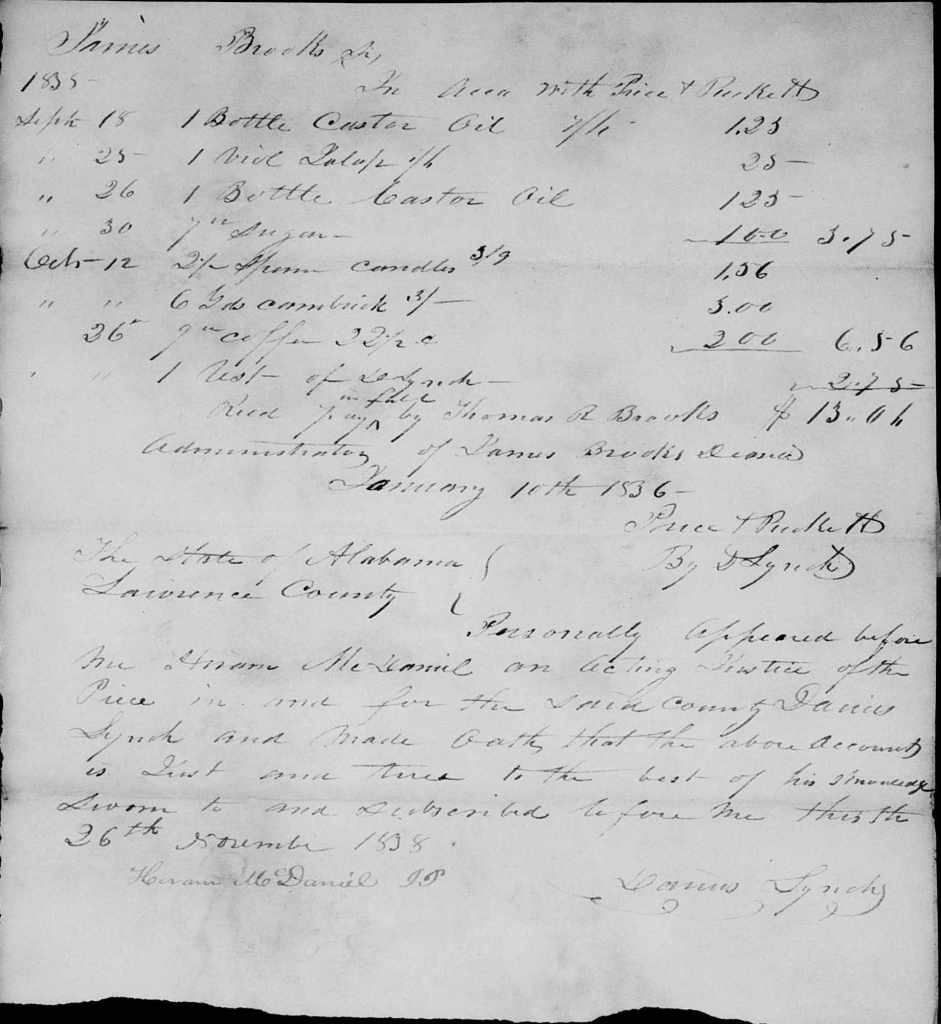 James Brooks Sr,
1835 In Acca with Price & Puckett
Septr 18 1 Bottle Castor Oil 1.25
" 25 1 Viol Jalap 25
" 26 1 Bottle Castor Oil 125
" 30 7 lb Sugar 100 3.75
Oct 12 Sperm candles 3/9 1.56
" " 6 Yds cambrick 3/ 3.00
26 9 lb coffee 22½ c 200 6.56
" " 1 Vest of D Lynch 2.75
Recd pay in full by Thomas R Brooks $ 13.06
Administrator of James Brooks Decd
January 10th 1836
Price & Puckett
The State of Alabama By D Lynch
Lawrence County
Personally Appeared before
Me Hiram McDaniel an Acting Justice of the
Piece in and for the said County Darius
Lynch and Made Oath that the above Account
is Just and true to the best of his Knowledge
Sworn to and Subscribed before me this the
26th November 1838.
Hiram McDaniel JP Darius Lynch